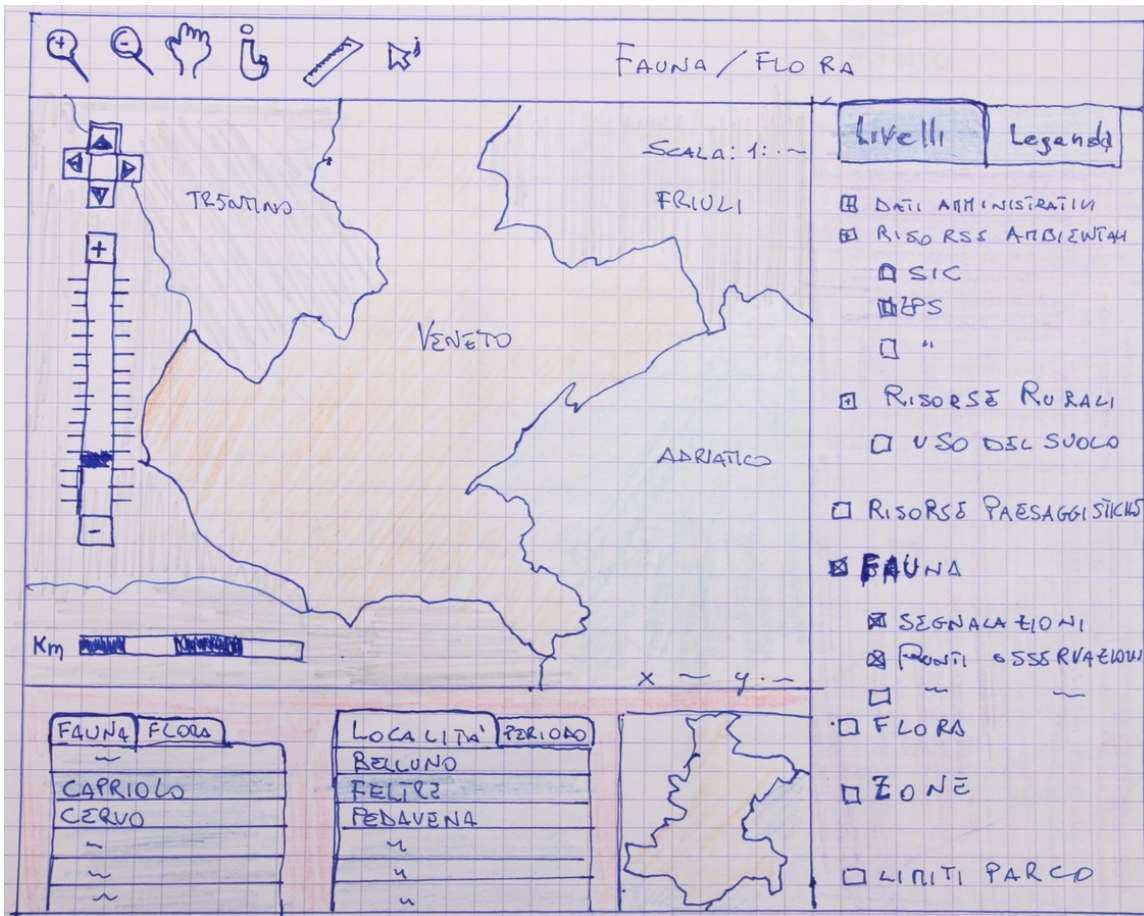 FAUNA / FLORA
SCALA: 1: ~
TRENTINO
FRIULI
VENETO
ADRIATICO
+
-
Km
x ~ y. ~
Livelli
Legenda
DATI AMMINISTRATIVI
RISORSE AMBIENTALI
SIC
ZPS
"
RISORSE RURALI
USO DEL SUOLO
RISORSE PAESAGGISTICHE
FAUNA
SEGNALAZIONI
PUNTI OSSERVAZIONI
~ ~
FLORA
ZONE
LIMITI PARCO
FAUNA FLORA
~
CAPRIOLO
CERVO
~
~
~
LOCALITA' PERIODO
BELLUNO
FELTRE
PEDAVENA
"
"
"